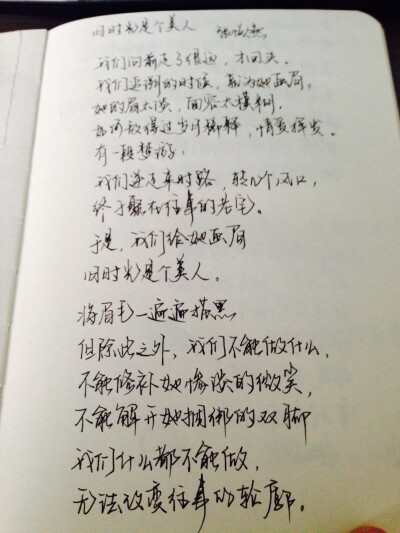 旧时光是个美人 张悦然
我们向前走了很远，才回头。
我们追溯的时候，就为她画眉，
她的眉太淡，面容太模糊。
如何敌得过岁月稀释，情爱挥发。
有一段梦游，
我们逆走来时路，转几个风口，
终于 在往事的
于是，我们给她画眉
旧时光是个美人。
将眉毛一遍遍描黑
但除此之外，我们不能做什么，
不能修补她惨淡的微笑，
不能解开她捆绑的双脚
我们什么都不能做，
无法改变往事的轮廓。